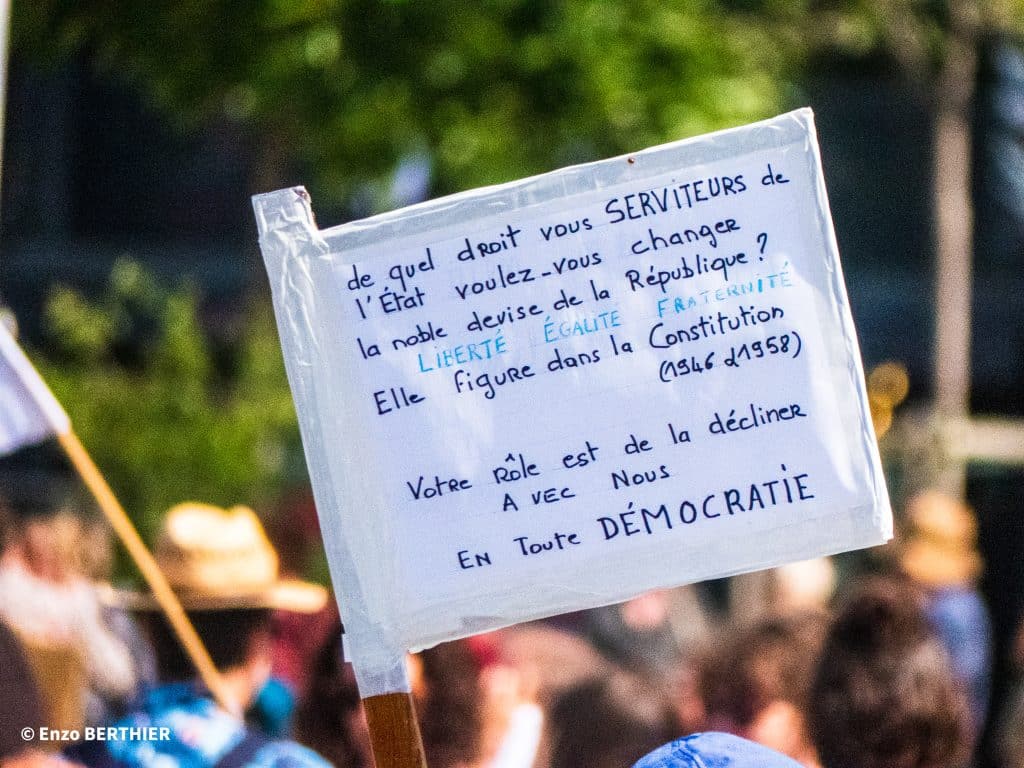 de quel droit vous SERVITEURS de
l'État voulez-vous changer
la noble devise de la République ?
LIBERTÉ ÉGALITE FRATERNITÉ
Elle figure dans la Constitution
(1946 et 1958)
Votre rôle est de la décliner
AVEC NOUS
EN Toute DÉMOCRATIE
© Enzo BERTHIER